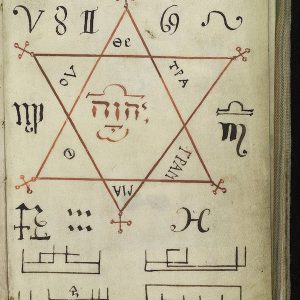 Θε
ΟΥ
ΤΡΑ
יהוה
Θ
ΓΡΑΜ
ΜΑ